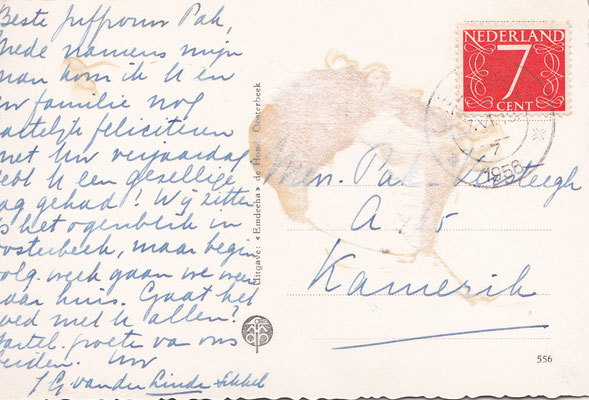 Beste juffrouw Pak,
Mede namens mijn
man kom ik U en
uw familie nog
artelijk feliciteren
met Uw verjaardag
ebt U een gezellige
ag gehad! Wij zitten
s het ogenblik in
oosterbeek, maar begin
olg. week gaan we weer
aar huis. Gaat het
oed met U allen?
artel. groete van ons
beiden. Uw
van der Linde
Uitgave: «Emdeeha» de Oosterbeek
NEDERLAND
7
CENT
1956
Mej. Pak
A
Kamerik
556